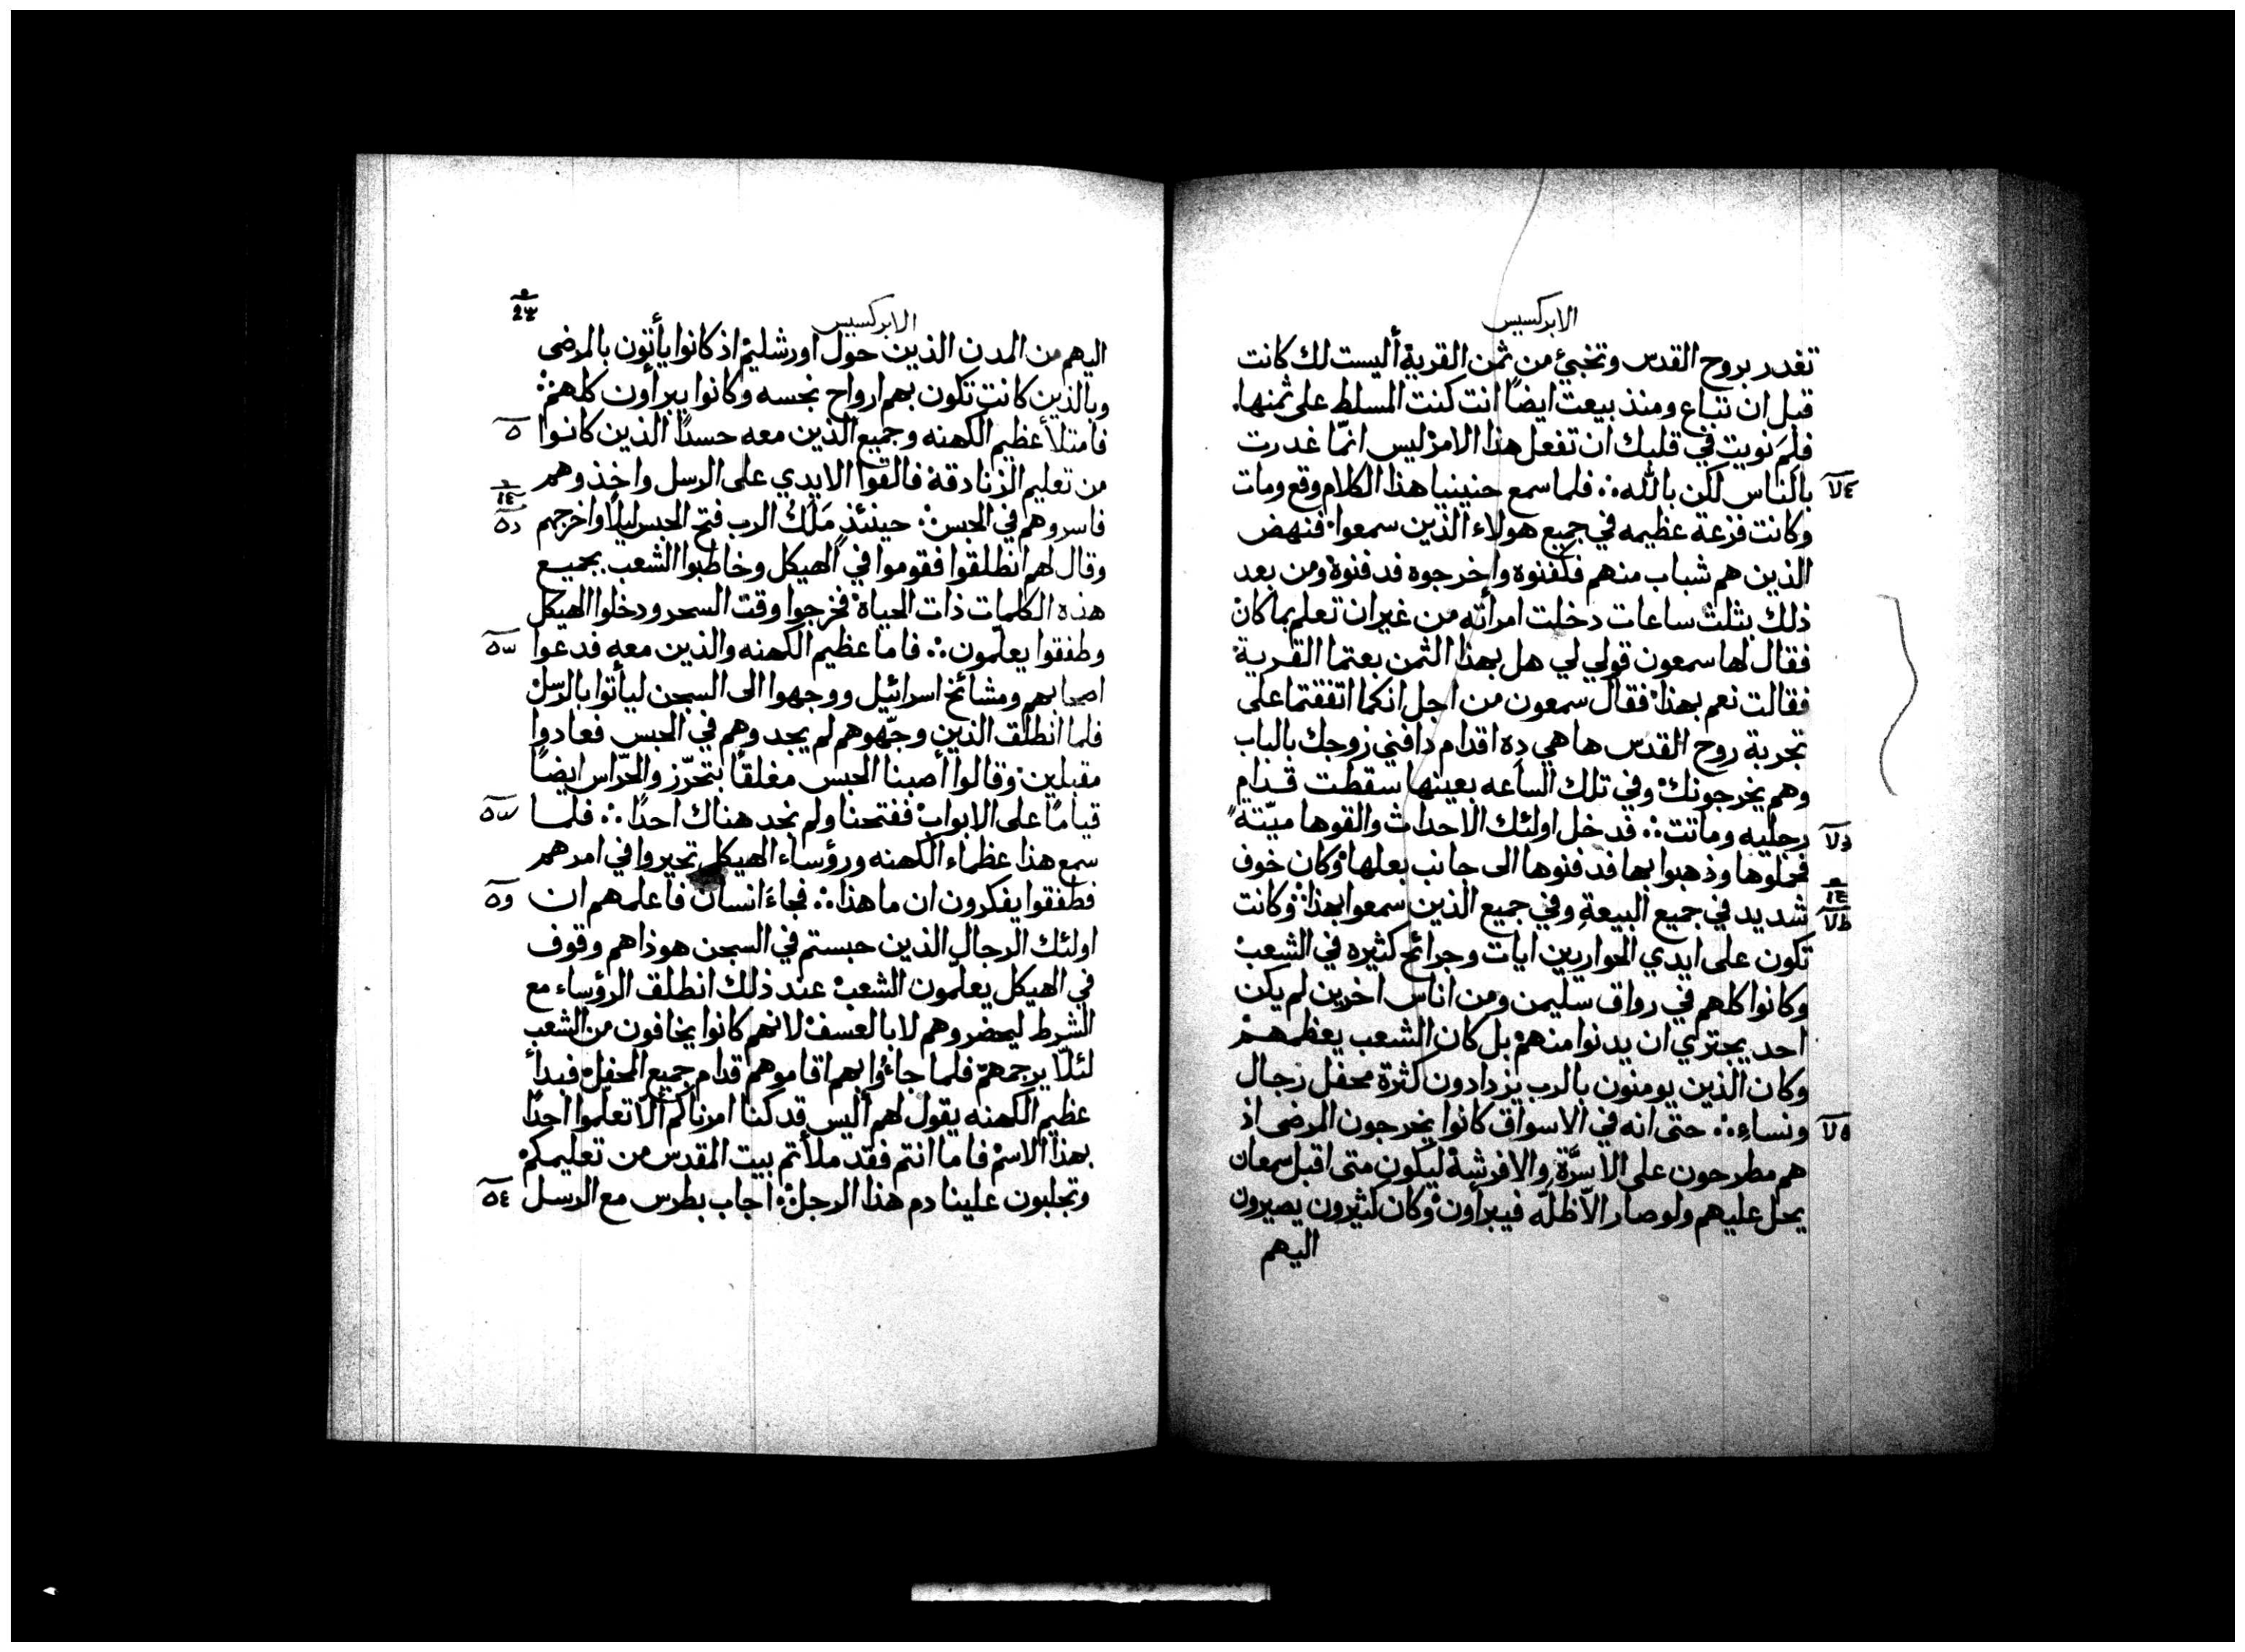 الابركسيس
تغدر بروح القدس وتخبئ من ثمن القرية أليست لك كانت
قبل ان تباع ومنذ بيعت ايضاً انت كنت المسلط على ثمنها.
فلِمَ نويت في قلبك ان تفعل هذا الامر ليس انمّا غدرت
بالناس لكن بالله ∴ فلما سمع حنينيا هذا الكلام وقع ومات
وكانت فزعة عظيمه في جميع هولاء الذين سمعوا فنهض
الذين هم شباب منهم فكفنوه واخرجوه فدفنوه ومن بعد
ذلك بثلث ساعات دخلت امرأته من غير ان تعلم بما كان
فقال لها سمعون قولي لي هل بهذا الثمن بعتما القرية
فقالت نعم بهذا فقال سمعون من اجل انكما اتفقتما على
تجربة روح القدس ها هي ده اقدام دافني زوجك بالباب
وهم يخرجونك وفي تلك الساعه بعينها سقطت قدام
رجليه وماتت ∴ فدخل اولئك الاحداث والقوها ميّتة
فحملوها وذهبوا بها فدفنوها الى جانب بعلها وكان خوف
شديد في جميع البيعة وفي جميع الذين سمعوا بهذا وكانت
تكون على ايدي الحواريين ايات وجرائح كثيره في الشعب
وكانوا كلهم في رواق سليمن ومن اناس اخرين لم يكن
احد يجتري ان يدنوا منهم بل كان الشعب يعظمهم
وكان الذين يومنون بالرب يزدادون كثرة محفل رجال
ونساءِ ∴ حتى انه في الاسواق كانوا يخرجون المرضى اذ
هم مطرحون على الاسرَّة والافرشة ليكون متى اقبل سمعان
يحل عليهم ولو صار الاّظلّه فيبرأون وكان كثيرون يصيرون
اليهم
الابركسيس
اليهم من المدن الذين حول اورشليم اذ كانوا يأتون بالمرضى
وبالذين كانت تكون بهم ارواح نجسه وكانوا يبرأون كلهم ∴
فامتلأ عظيم الكهنه وجميع الذين معه حسداً الذين كانوا
من تعليم الزنادقة فالقوا الايدي على الرسل واخذوهم
فاسروهم في الحبس ∴ حينئذٍ مَلَكُ الرب فتح الحبس ليلاً واخرجهم
وقال لهم انطلقوا فقوموا في الهيكل وخاطبوا الشعب بجميع
هذه الكلمات ذات الحياة فخرجوا وقت السحر ودخلوا الهيكل
وطفقوا يعلّمون ∴ فاما عظيم الكهنه والذين معه فدعوا
اصحابهم ومشائخ اسرائيل ووجهوا الى السجن ليأتوا بالرسل
فلما انطلق الذين وجّهوهم لم يجدوهم في الحبس فعادوا
مقبلين وقالوا أصبنا الحبس مغلقاً بتحرّز والحرّاس ايضاً
قياماً على الابواب ففتحنا ولم نجد هناك احداً ∴ فلما
سمع هذا عظماء الكهنه ورؤساء الهيكل تحيروا في امرهم
فطفقوا يفكرون ان ما هذا ∴ فجاءَ انسان فاعلمهم ان
اولئك الرجال الذين حبستم في السجن هوذا هم وقوف
في الهيكل يعلّمون الشعب عند ذلك انطلق الرؤساء مع
الشرط ليحضروهم لا بالعسف لانهم كانوا يخافون من الشعب
لئلاّ يرجمهم فلما جاءُوا بهم اقاموهم قدام جميع المحفل فبدأ
عظيم الكهنه يقول لهم أليس قد كنا امرناكم ألا تعلّموا احداً
بهذا الاسم فاما انتم فقد ملأتم بيت المقدس من تعليمكم
وتجلبون علينا دم هذا الرجل ∴ اجاب بطرس مع الرسل